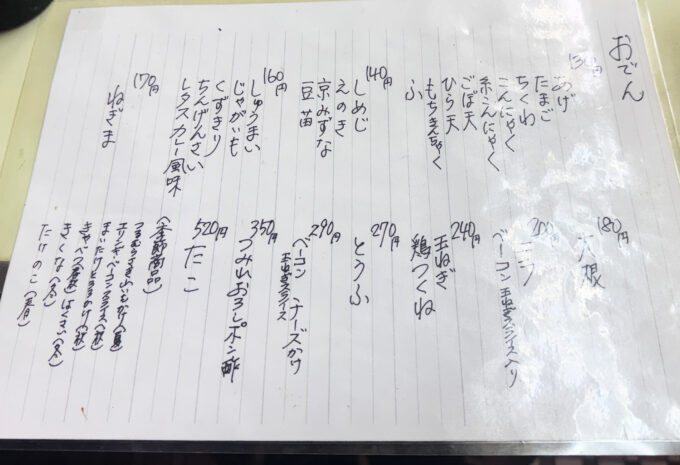 おでん
130円
あげ
たまご
ちくわ
こんにゃく
糸こんにゃく
ごぼ天
ひら天
もちきんちゃく
ふ
140円
しめじ
えのき
京みずな
豆苗
160円
しゅうまい
じゃがいも
くずきり
ちんげんさい
レタスカレー風味
170円
ねぎま
180円
大根
200円
ニラ
ベーコン玉ねぎスライス入り
240円
玉ねぎ
鶏つくね
270円
とうふ
290円
ベーコンチーズかけ
玉ねぎスライス
350円
つみれおろしポン酢
520円
たこ
(季節商品)
きくな(冬)
たけのこ